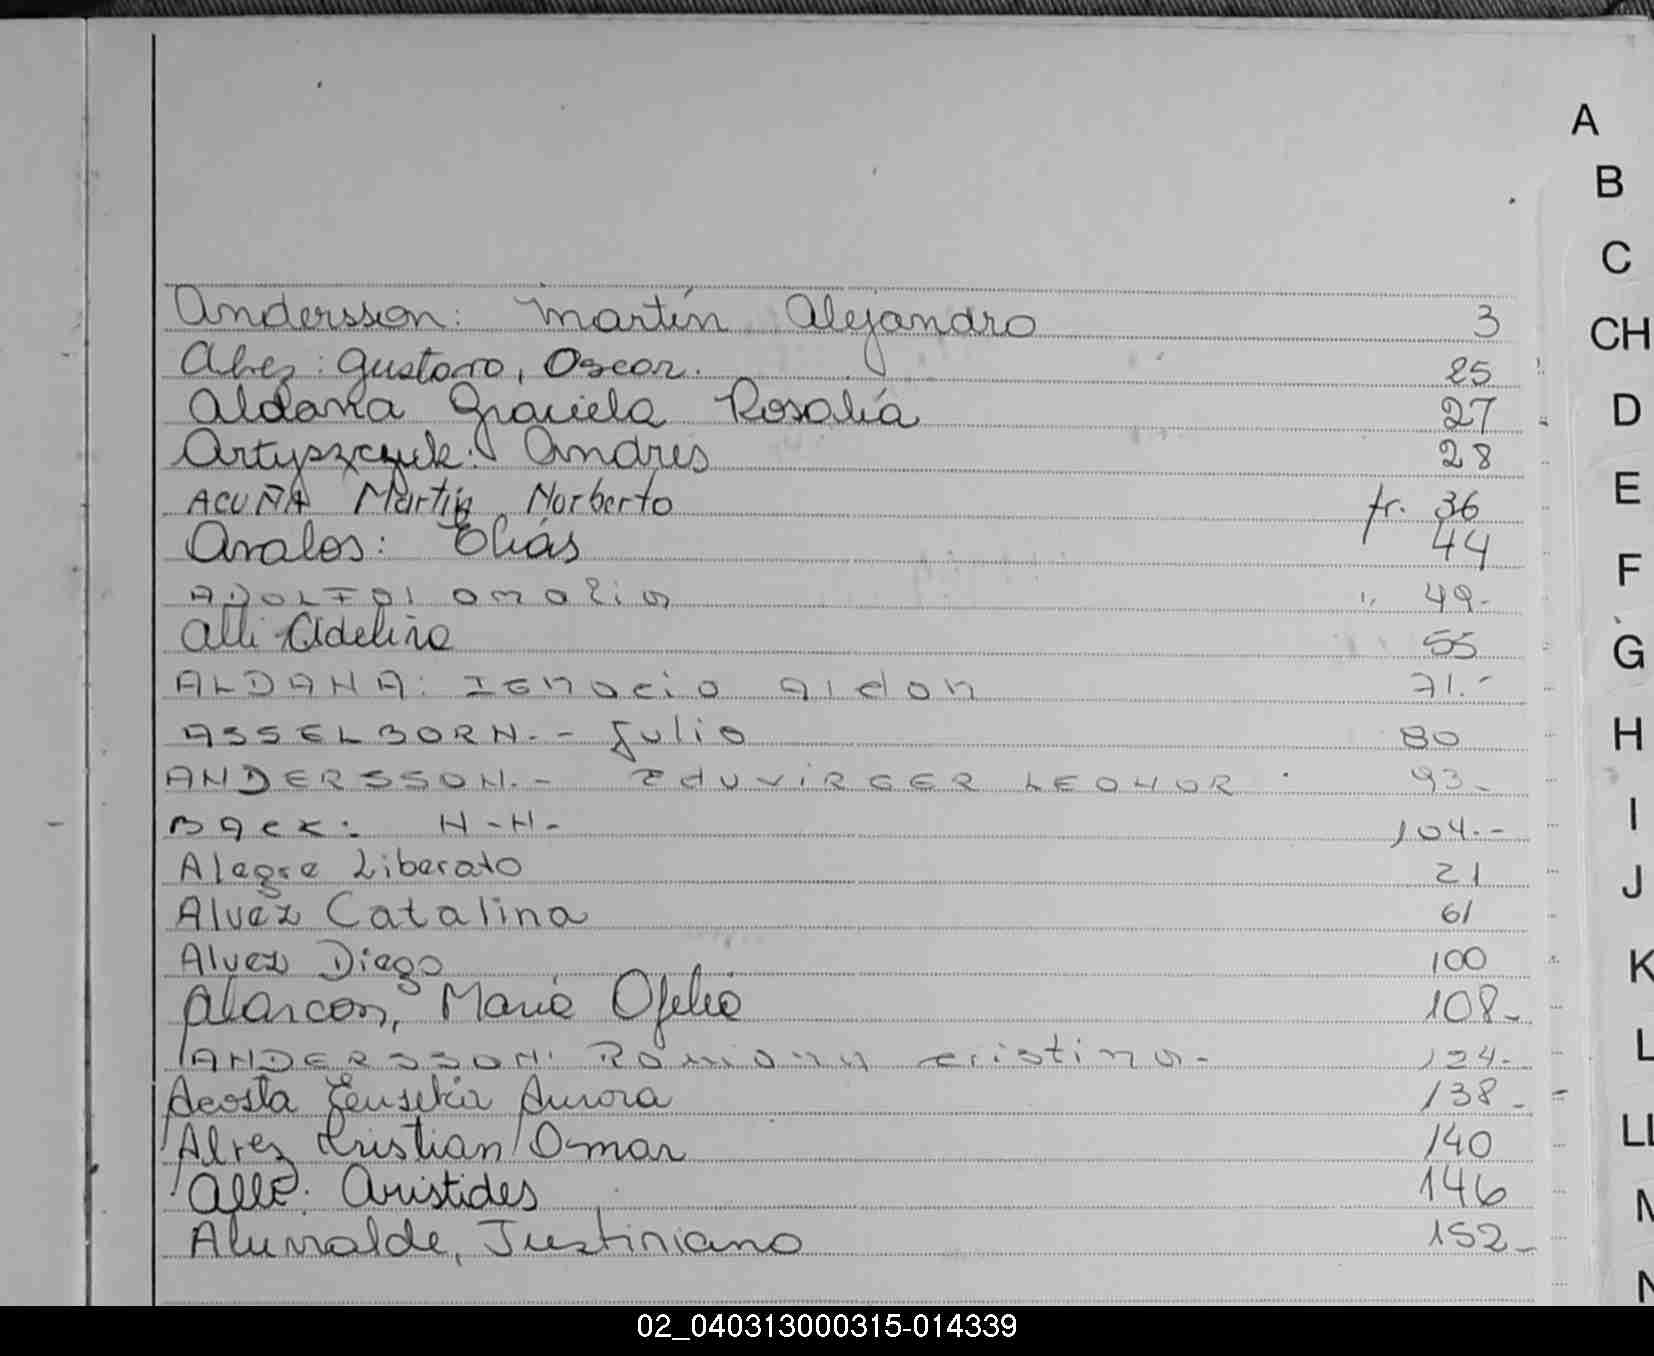 A
B
C
CH
D
E
F
G
H
I
J
K
L
LL
M
N
Andersson: Martín Alejandro 3
Gustavo, Oscar. 25
Aldana Graciela Rosalía 27
Artyszczuk: Andres 28
ACUÑA Martín Norberto fr. 36
Avalos: Elías 44
Amalia 49-
Alli Adelina 55
ALDANA: Ignacio Aidon 71.-
ASSELBORN.- Julio 80
ANDERSSON.- EDUVIRGER LEONOR 93-
BACK: H-H- 104.-
Alegre Liberato 21
Alvez Catalina 61
Alvez Diego 100
Alarcon, María Ofelia 108-
ANDERSSON: Romina cristina- 124-
Acosta Aurora 138-
Alvez Cristian Omar 140
Alle: Aristides 146
Justiniano 152-
02_040313000315-014339